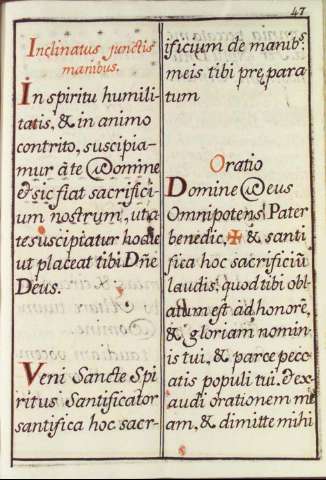 47
Inclinatus junctis
manibus.
In spiritu humili-
tatis, & in animo
contrito, suscipia-
mur à te Domine
& sic fiat sacrifici-
um nostrum, ut a
te suscipiatur hodie
ut placeat tibi Dñe
Deus.
Veni Sancte Spi
ritus Santificator
santifica hoc sacr-
ificium de manib.
meis tibi pre para
tum
Oratio
Domine Deus
Omnipotens Pater
benedic, ✠ & santi
fica hoc sacrificiū
laudis, quod tibi obl-
atum est ad honorē,
& gloriam nomin-
is tui, & parce pecc-
atis populi tui, & ex-
audi orationem me
am, & dimitte mihi